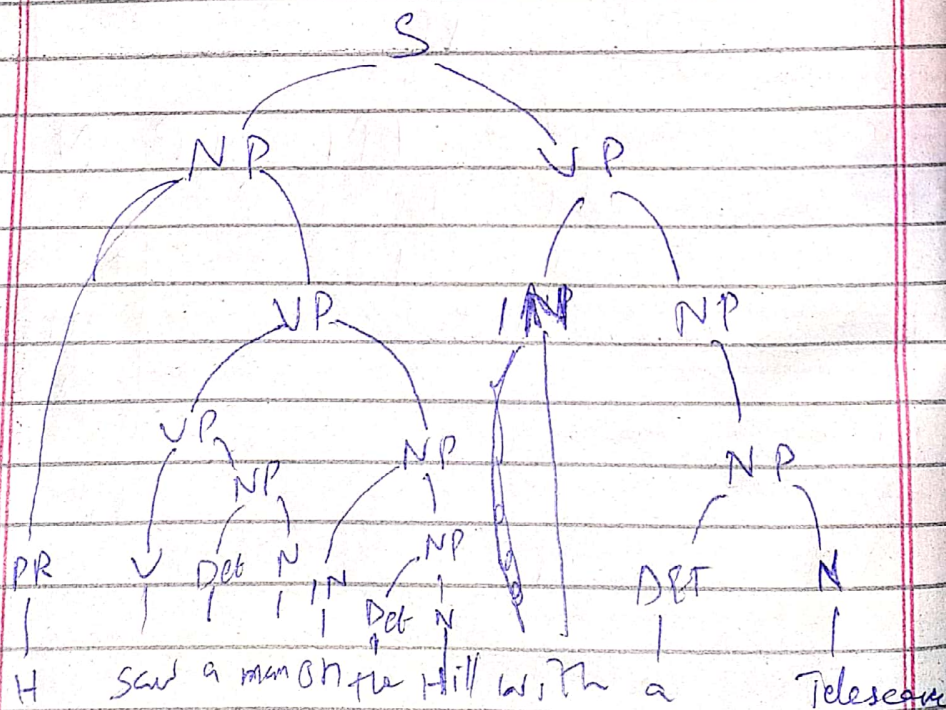 S
NP VP
VP NP
VP NP NP
NP
NP
PR V Det N IN DET N
Det N
H saw a man on the Hill with a Telescope